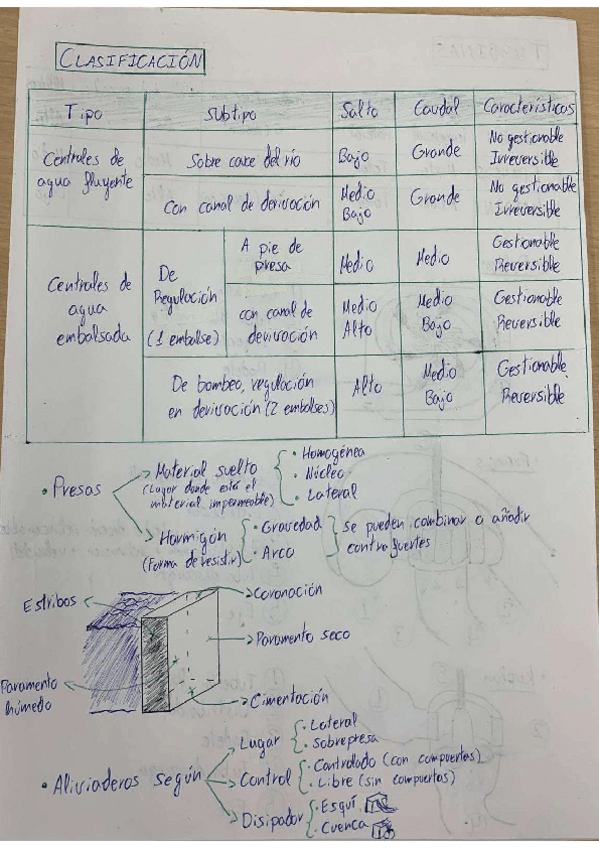 CLASIFICACIÓN
Tipo Subtipo Salto Caudal Características
Centrales de agua fluyente
Sobre cauce del río Bajo Grande No gestionable Irreversible
Con canal de derivación Medio Bajo Grande No gestionable Irreversible
Centrales de agua embalsada
De Regulación (1 embalse)
A pie de presa Medio Medio Gestionable Reversible
con canal de derivación Medio Alto Medio Bajo Gestionable Reversible
De bombeo, regulación en derivación (2 embalses) Alto Medio Bajo Gestionable Reversible
• Presas
Material suelto
(Lugar donde está el material impermeable)
• Homogénea
• Núcleo
• Lateral
Hormigón
(Forma de resistir)
• Gravedad
• Arco
se pueden combinar o añadir
contrafuertes
Estribos
Coronación
Paramento seco
Paramento
húmedo
Cimentación
• Aliviaderos según
Lugar
• Lateral
• Sobrepresa
Control
• Controlado (con compuertas)
• Libre (sin compuertas)
Disipador
• Esquí
• Cuenca